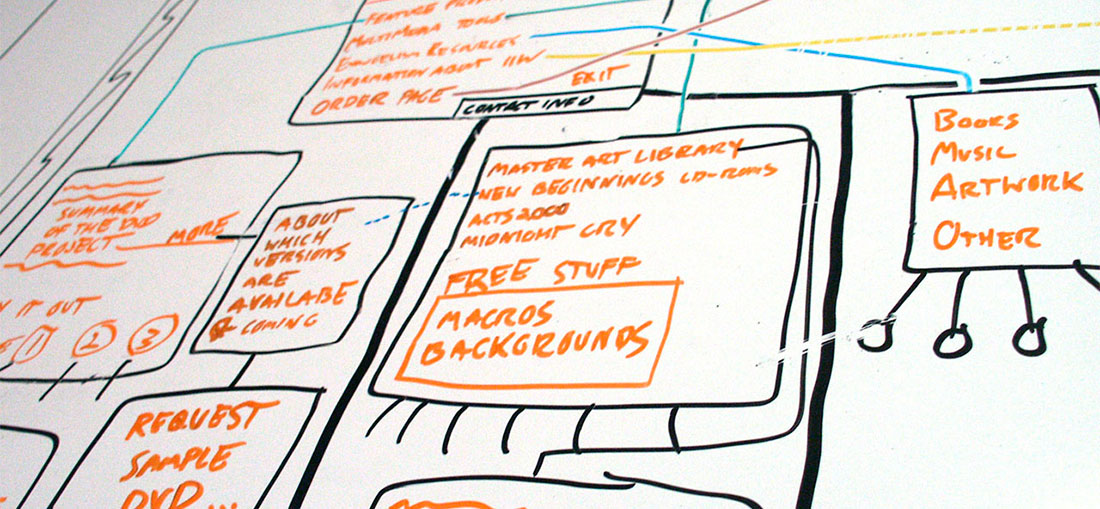 FEATURE
MULTIMEDIA TOOLS
EVANGELISM RESOURCES
INFORMATION ABOUT IIW
ORDER PAGE
EXIT
CONTACT INFO
SUMMARY
OF THE DVD
PROJECT
MORE
IT OUT
1 2 3
ABOUT
WHICH
VERSIONS
ARE
AVAILABE
COMING
REQUEST
SAMPLE
DVD...
MASTER ART LIBRARY
NEW BEGINNINGS CD-ROMS
ACTS 2000
MIDNIGHT CRY
FREE STUFF
MACROS
BACKGROUNDS
BOOKS
MUSIC
ARTWORK
OTHER